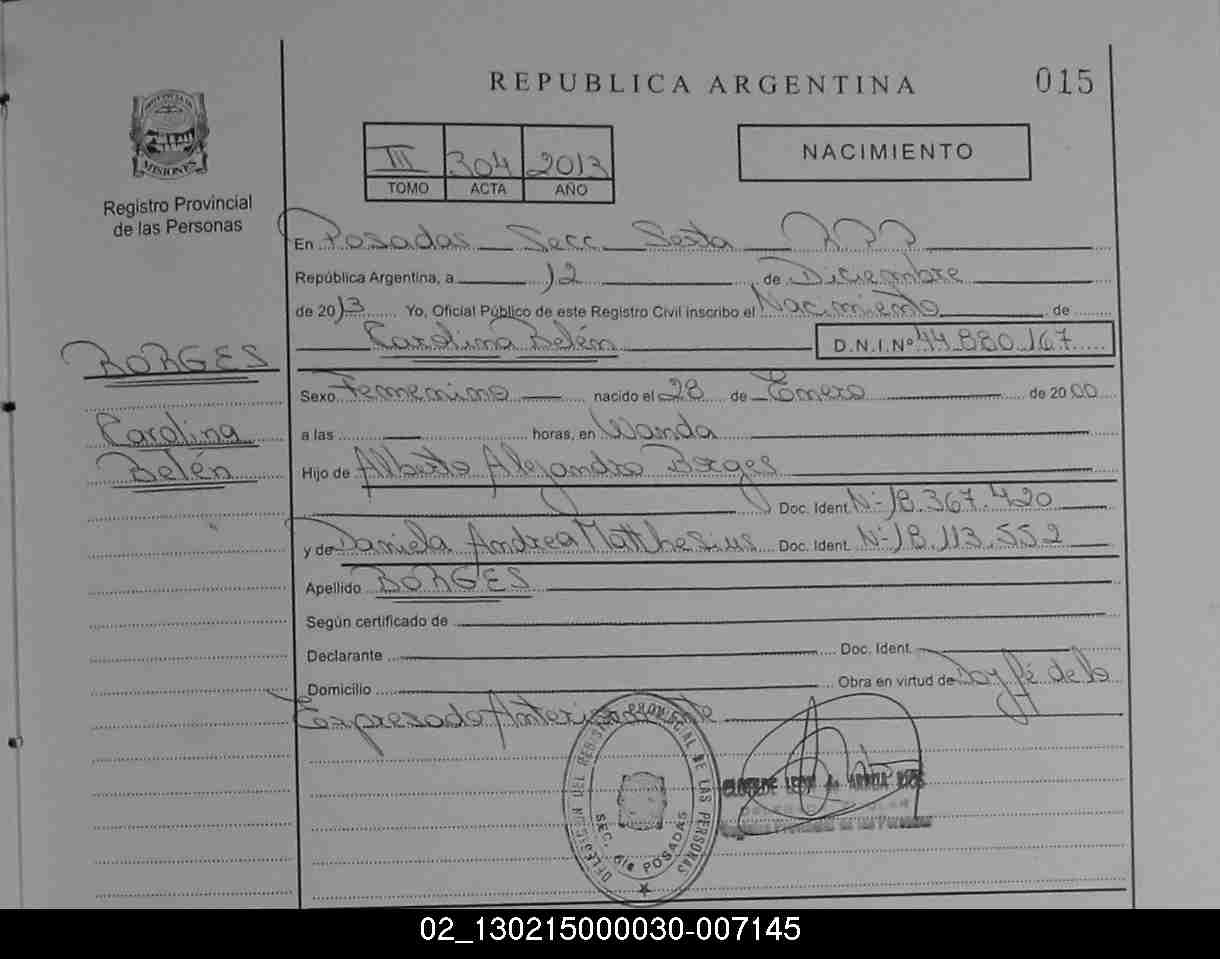 REPUBLICA ARGENTINA
015
PROVINCIA DE
MISIONES
Registro Provincial
de las Personas
III 304 2013
TOMO ACTA AÑO
NACIMIENTO
En Posadas Secc. Sexta
República Argentina, a 12 de Diciembre
de 2013 Yo, Oficial Público de este Registro Civil inscribo el Nacimiento de
Carolina Belén D.N.I.Nº 44.880.167
BORGES
Carolina
Belén
Sexo Femenino nacido el 28 de Enero de 2000
a las horas, en Wanda
Hijo de Alberto Alejandro Borges
Doc. Ident. Nº 18.367.420
y de Daniela Andrea Matthesius Doc. Ident. Nº 18.113.552
Apellido BORGES
Según certificado de
Declarante Doc. Ident.
Domicilio Obra en virtud de Doy fé de lo
Expresado Anteriormente
DELEGACION DEL REGISTRO PROVINCIAL DE LAS PERSONAS
SEC. 6ta POSADAS
02_130215000030-007145